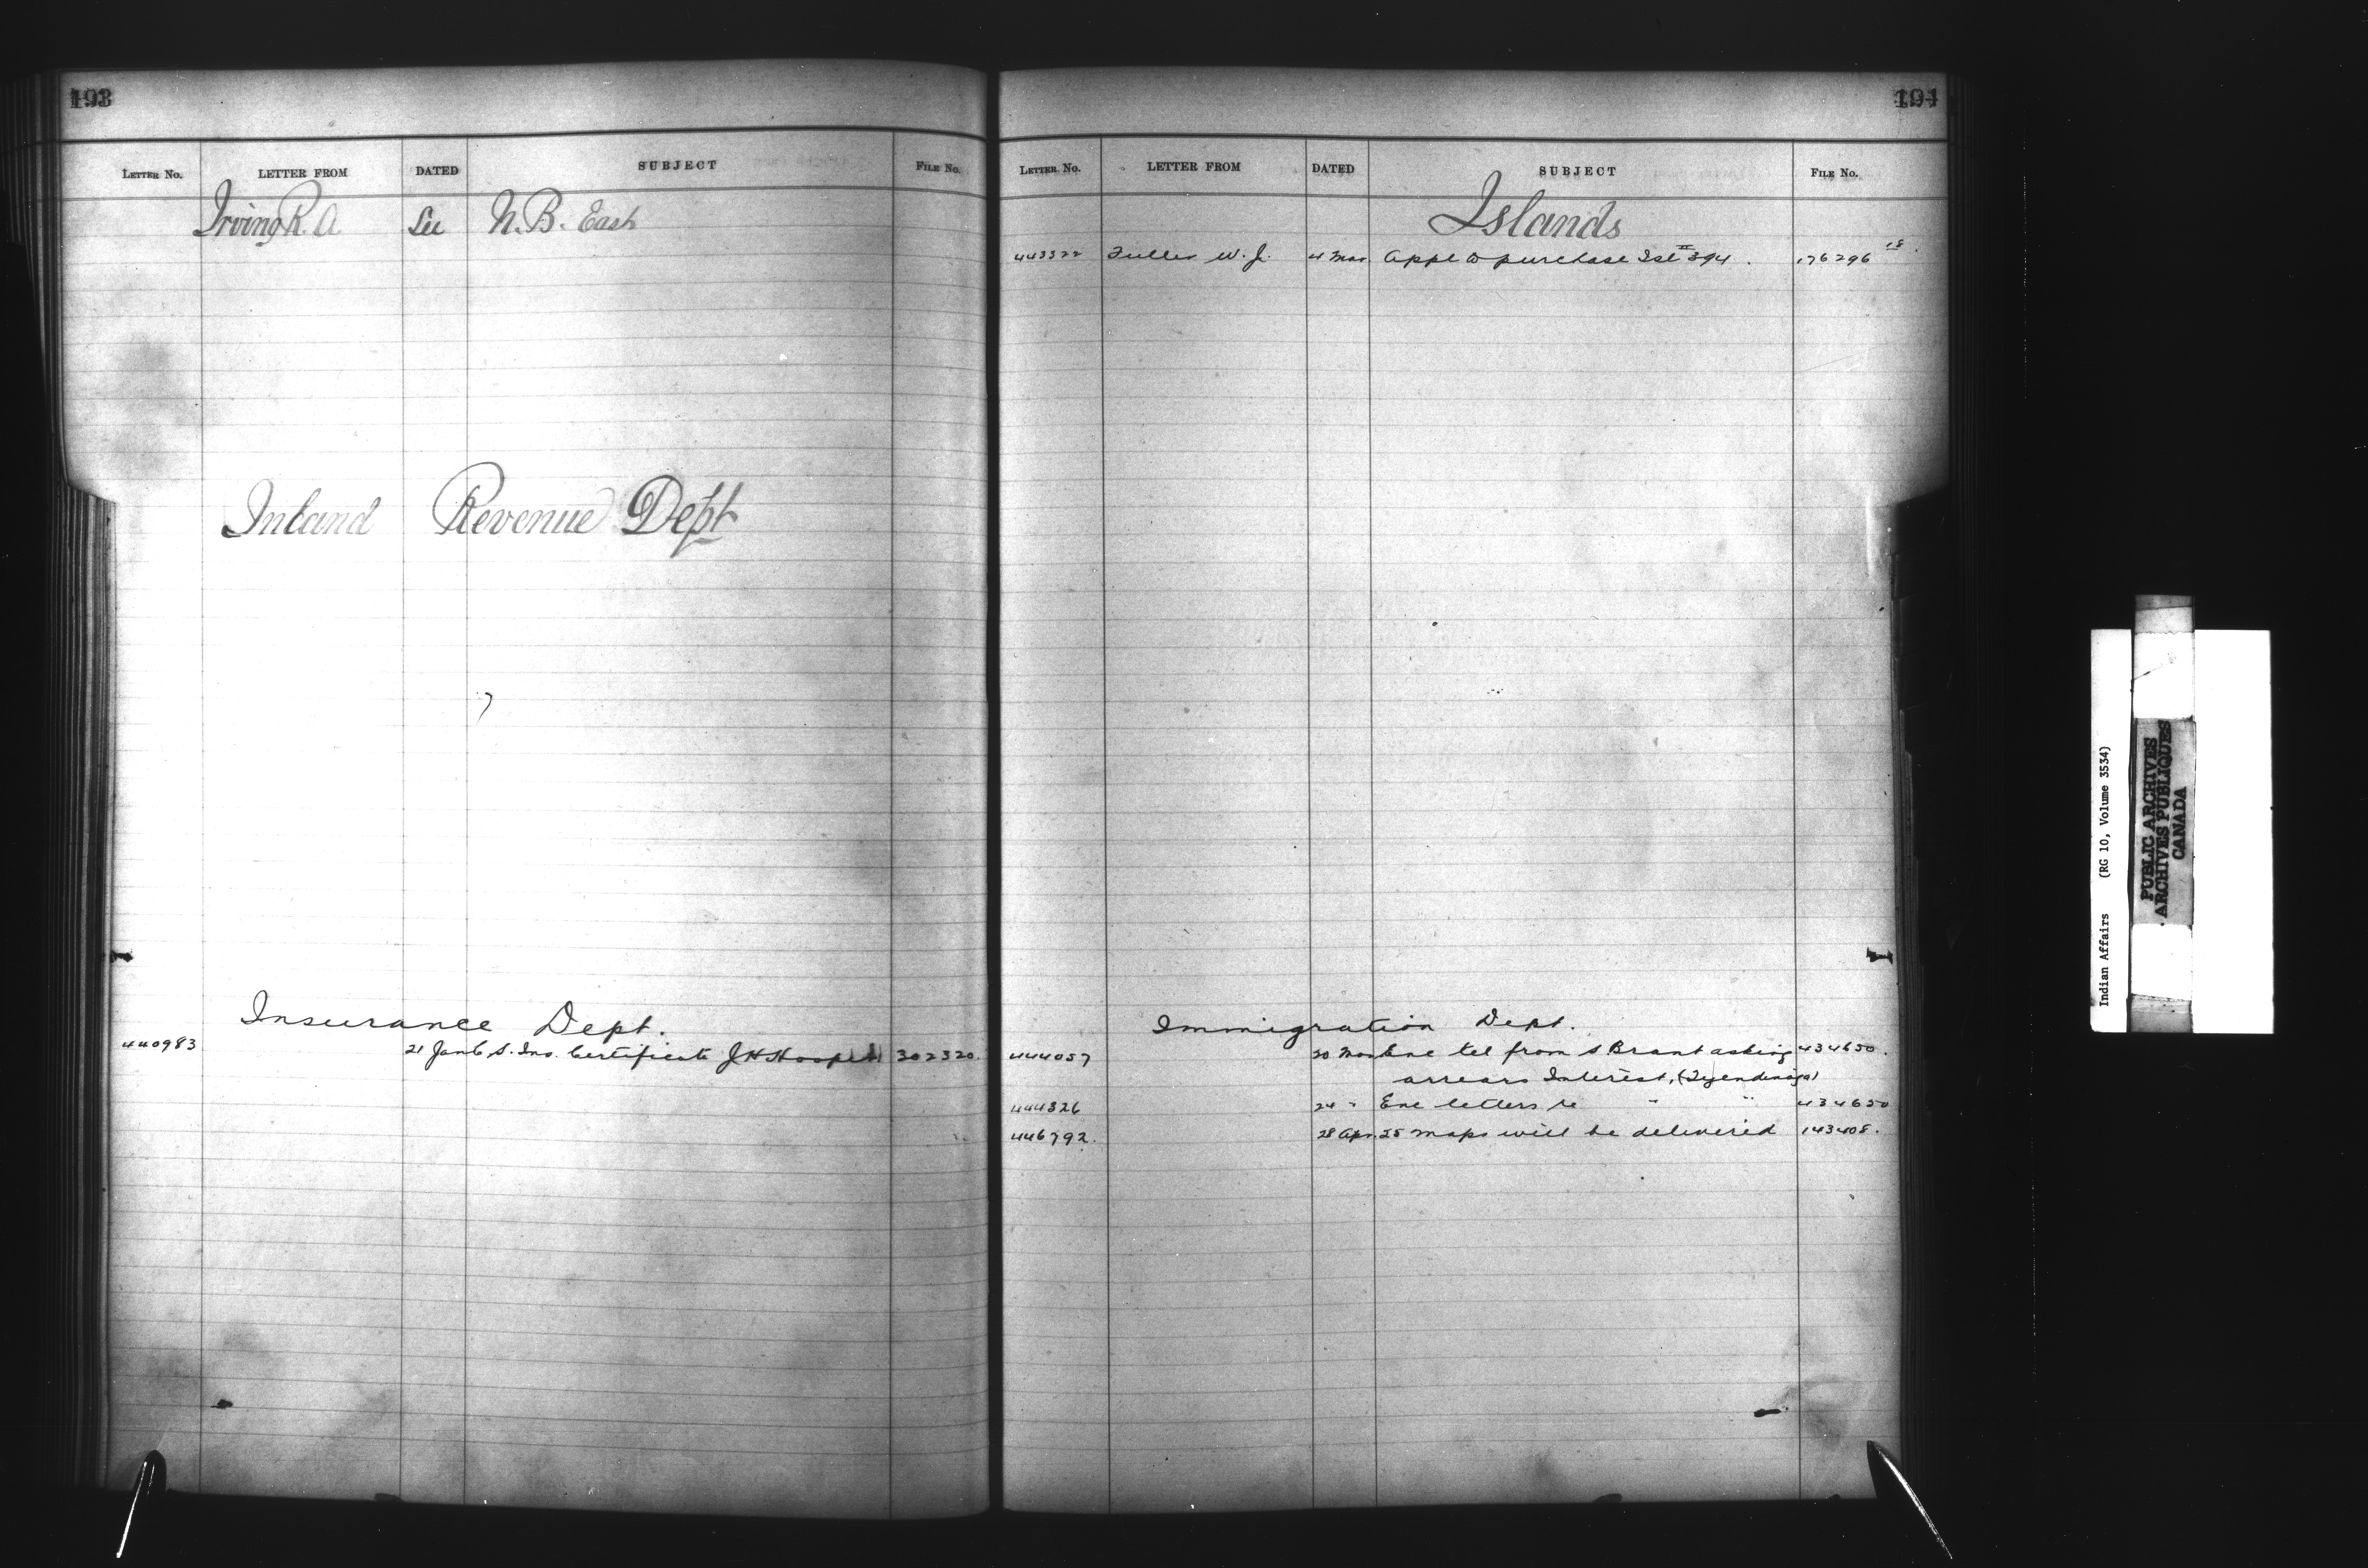 193
LETTER NO. LETTER FROM DATED SUBJECT FILE NO.
Irving R. A See N. B. East
Inland Revenue Dept
Insurance Dept.
440983 21 Jan C. S. Ins. Certificate J H Hooper 302320.
194
LETTER NO. LETTER FROM DATED SUBJECT FILE NO.
Islands
443322 Fuller W. J. 4 Mar Appl to purchase Isl 394. 176296 18.
Immigration Dept.
444057 20 Mar Enc tel from S Brant asking 434650.
arrears Interest, (Tyendinaga)
444326 24 " Enc letters re " " 434650
446792. 28 Apr. 25 maps will be delivered 143408.
Indian Affairs (RG 10, Volume 3534)
PUBLIC ARCHIVES
ARCHIVES PUBLIQUES
CANADA